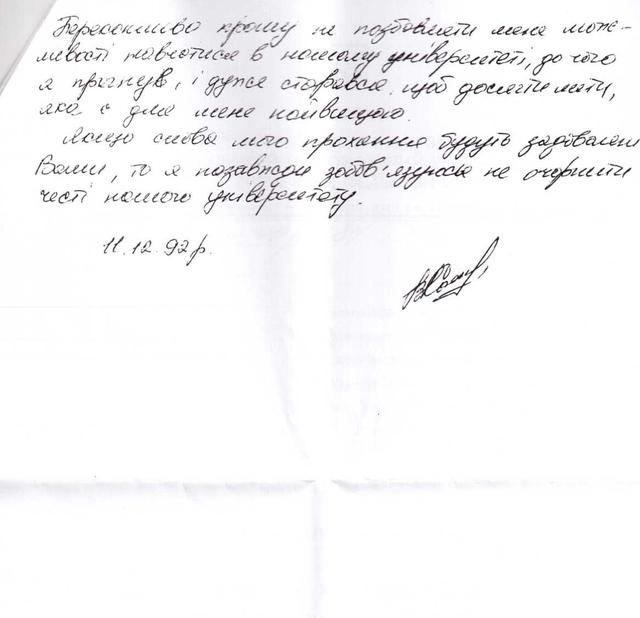 Переконливо прошу не позбавляти мене мож-
ливості навчатися в нашому університеті, до чого
я прагнув, і дуже старався щоб досягти мети,
яка є для мене найвищою.
Якщо слова мого прохання будуть задоволені
Вами, то я назавжди зобов'язуюсь не очорнити
честі нашого університету.
11.12.92 р.